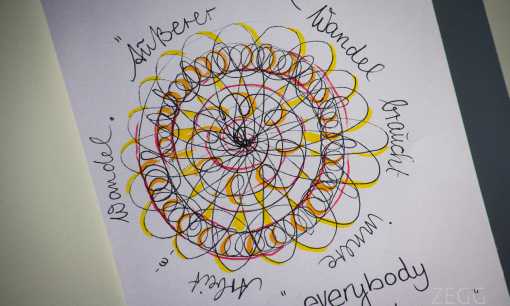 "Äußerer
Wandel
braucht
innere
Arbeit
Wandel.
"everybody
ZEGG